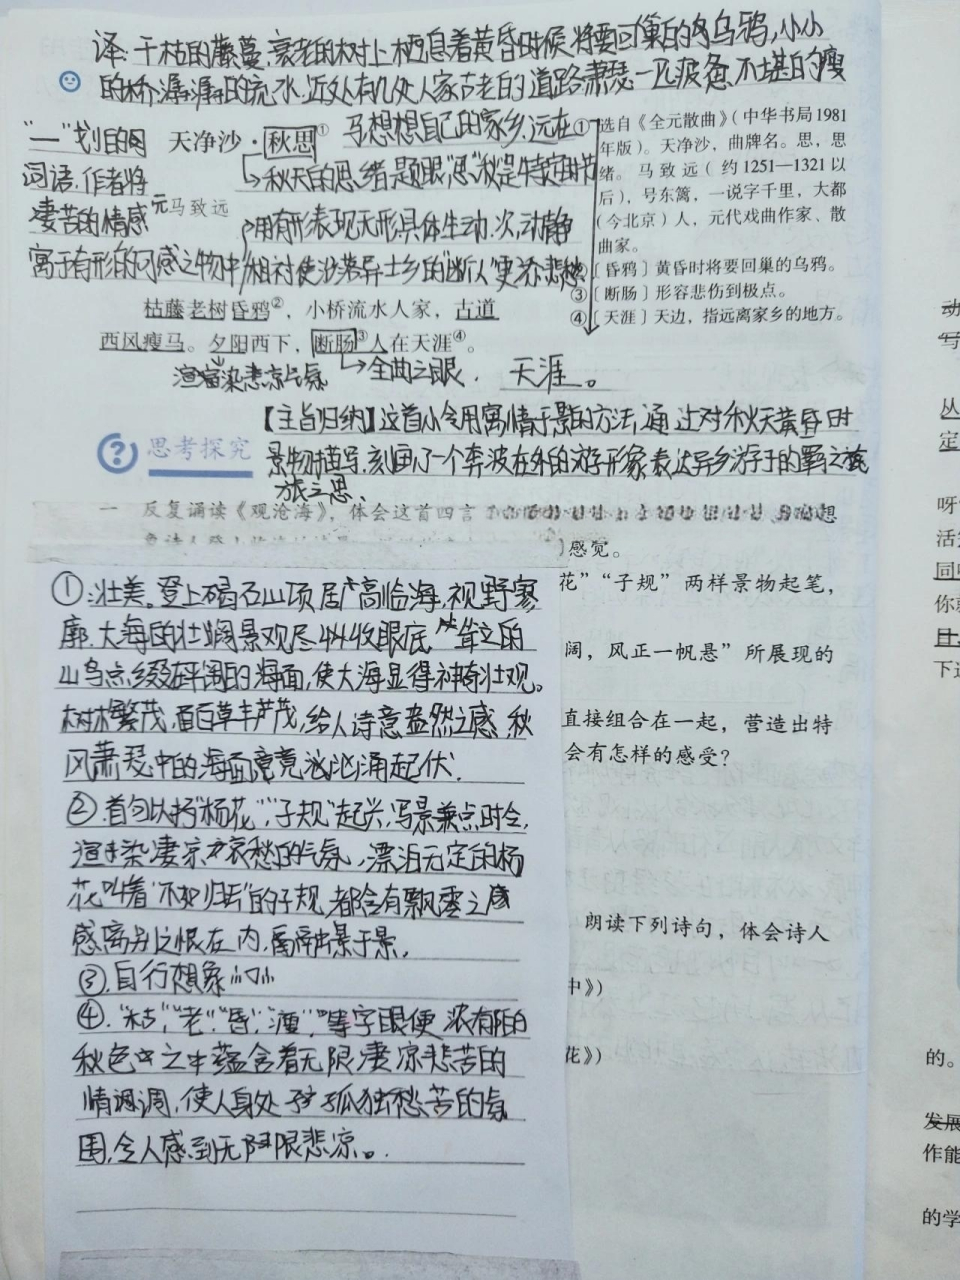 译:干枯的藤蔓,衰老的树上栖息着黄昏时候将要回巢的乌鸦,小小
的桥潺潺的流水,近处有几处人家古老的道路萧瑟一匹疲惫不堪的瘦
马想想自己的家乡,远在
天涯。
"一"划的的
词语,作者将
凄苦的情感
寓于有形的可感之物中
天净沙·秋思①
秋天的思绪,题眼"思"秋是特定时节
元 马致远
用有形表现无形具体生动.次,动静
相衬使沙落异士乡的"断人"更添悲愁
枯藤老树昏鸦②,小桥流水人家,古道
西风瘦马。夕阳西下,断肠③人在天涯④。
渲染悲凉气氛
全曲之眼.
①选自《全元散曲》(中华书局1981
年版)。天净沙,曲牌名。思,思
绪。马致远(约1251—1321以
后),号东篱,一说字千里,大都
(今北京)人,元代戏曲作家、散
曲家。
②〔昏鸦〕黄昏时将要回巢的乌鸦。
③〔断肠〕形容悲伤到极点。
④〔天涯〕天边,指远离家乡的地方。
【主旨归纳】这首小令用寓情于景的方法,通过对秋天黄昏时
景物描写,刻画了一个奔波在外的游子形象表达异乡游子的羁
旅之思、
思考探究
一 反复诵读《观沧海》,体会这首四言
想
感觉。
花”“子规”两样景物起笔,
阔,风正一帆悬”所展现的
直接组合在一起,营造出特
会有怎样的感受?
朗读下列诗句,体会诗人
中》)
花》)
①:壮美。登上碣石山顶居高临海,视野寥
廓.大海的壮阔景观尽收眼底,耸立的
山鸟点缀在平阔的海面,使大海显得神奇壮观。
树木繁茂,百草丰茂,给人诗意盎然之感 秋
风萧瑟中的海面竟汹涌起伏.
②.首句以"杨花""子规"起兴,写景兼点时令,
渲染凄凉哀愁的气氛,漂泊无定的杨
花叫着"不如归去"的子规,都含有飘零之感
感离别之恨在内,
③.自行想象
④.“枯”,“老”,“昏”,“瘦”,等字眼使浓郁的
秋色之中蕴含着无限凄凉悲苦的
情调,使人身处孤独愁苦的氛
围,令人感到无限悲凉。
动
写
丛
定
呀
活
同
你
下
的。
发展
作能
的学